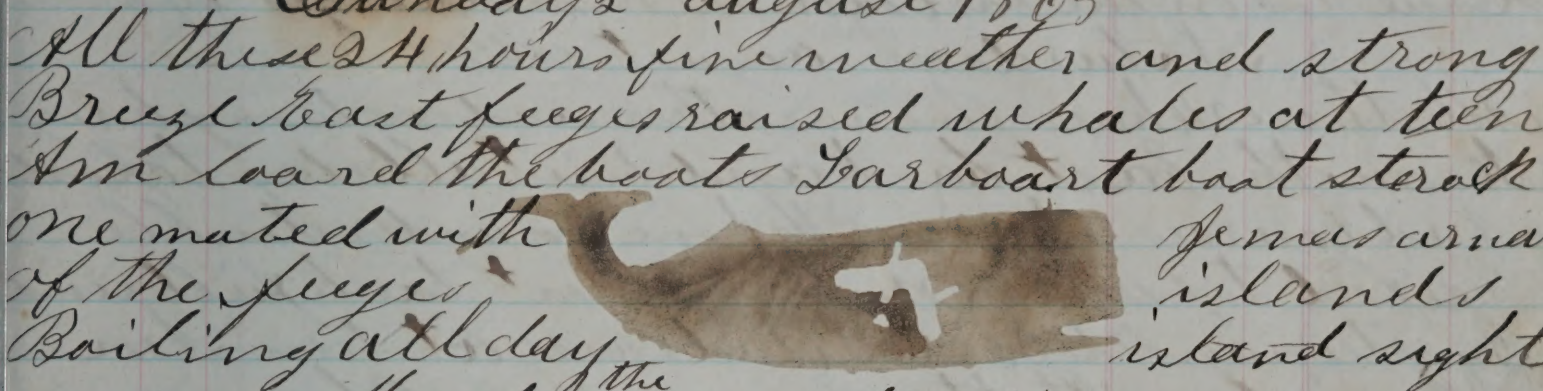 Sunday 2 august 18
All these 24 hours fine weather and strong
Breeze East feeges raised whales at teen
Am loard the boats Larboart boat sterock
one mated with
of the feeges islands
Boiling all day island sight
the